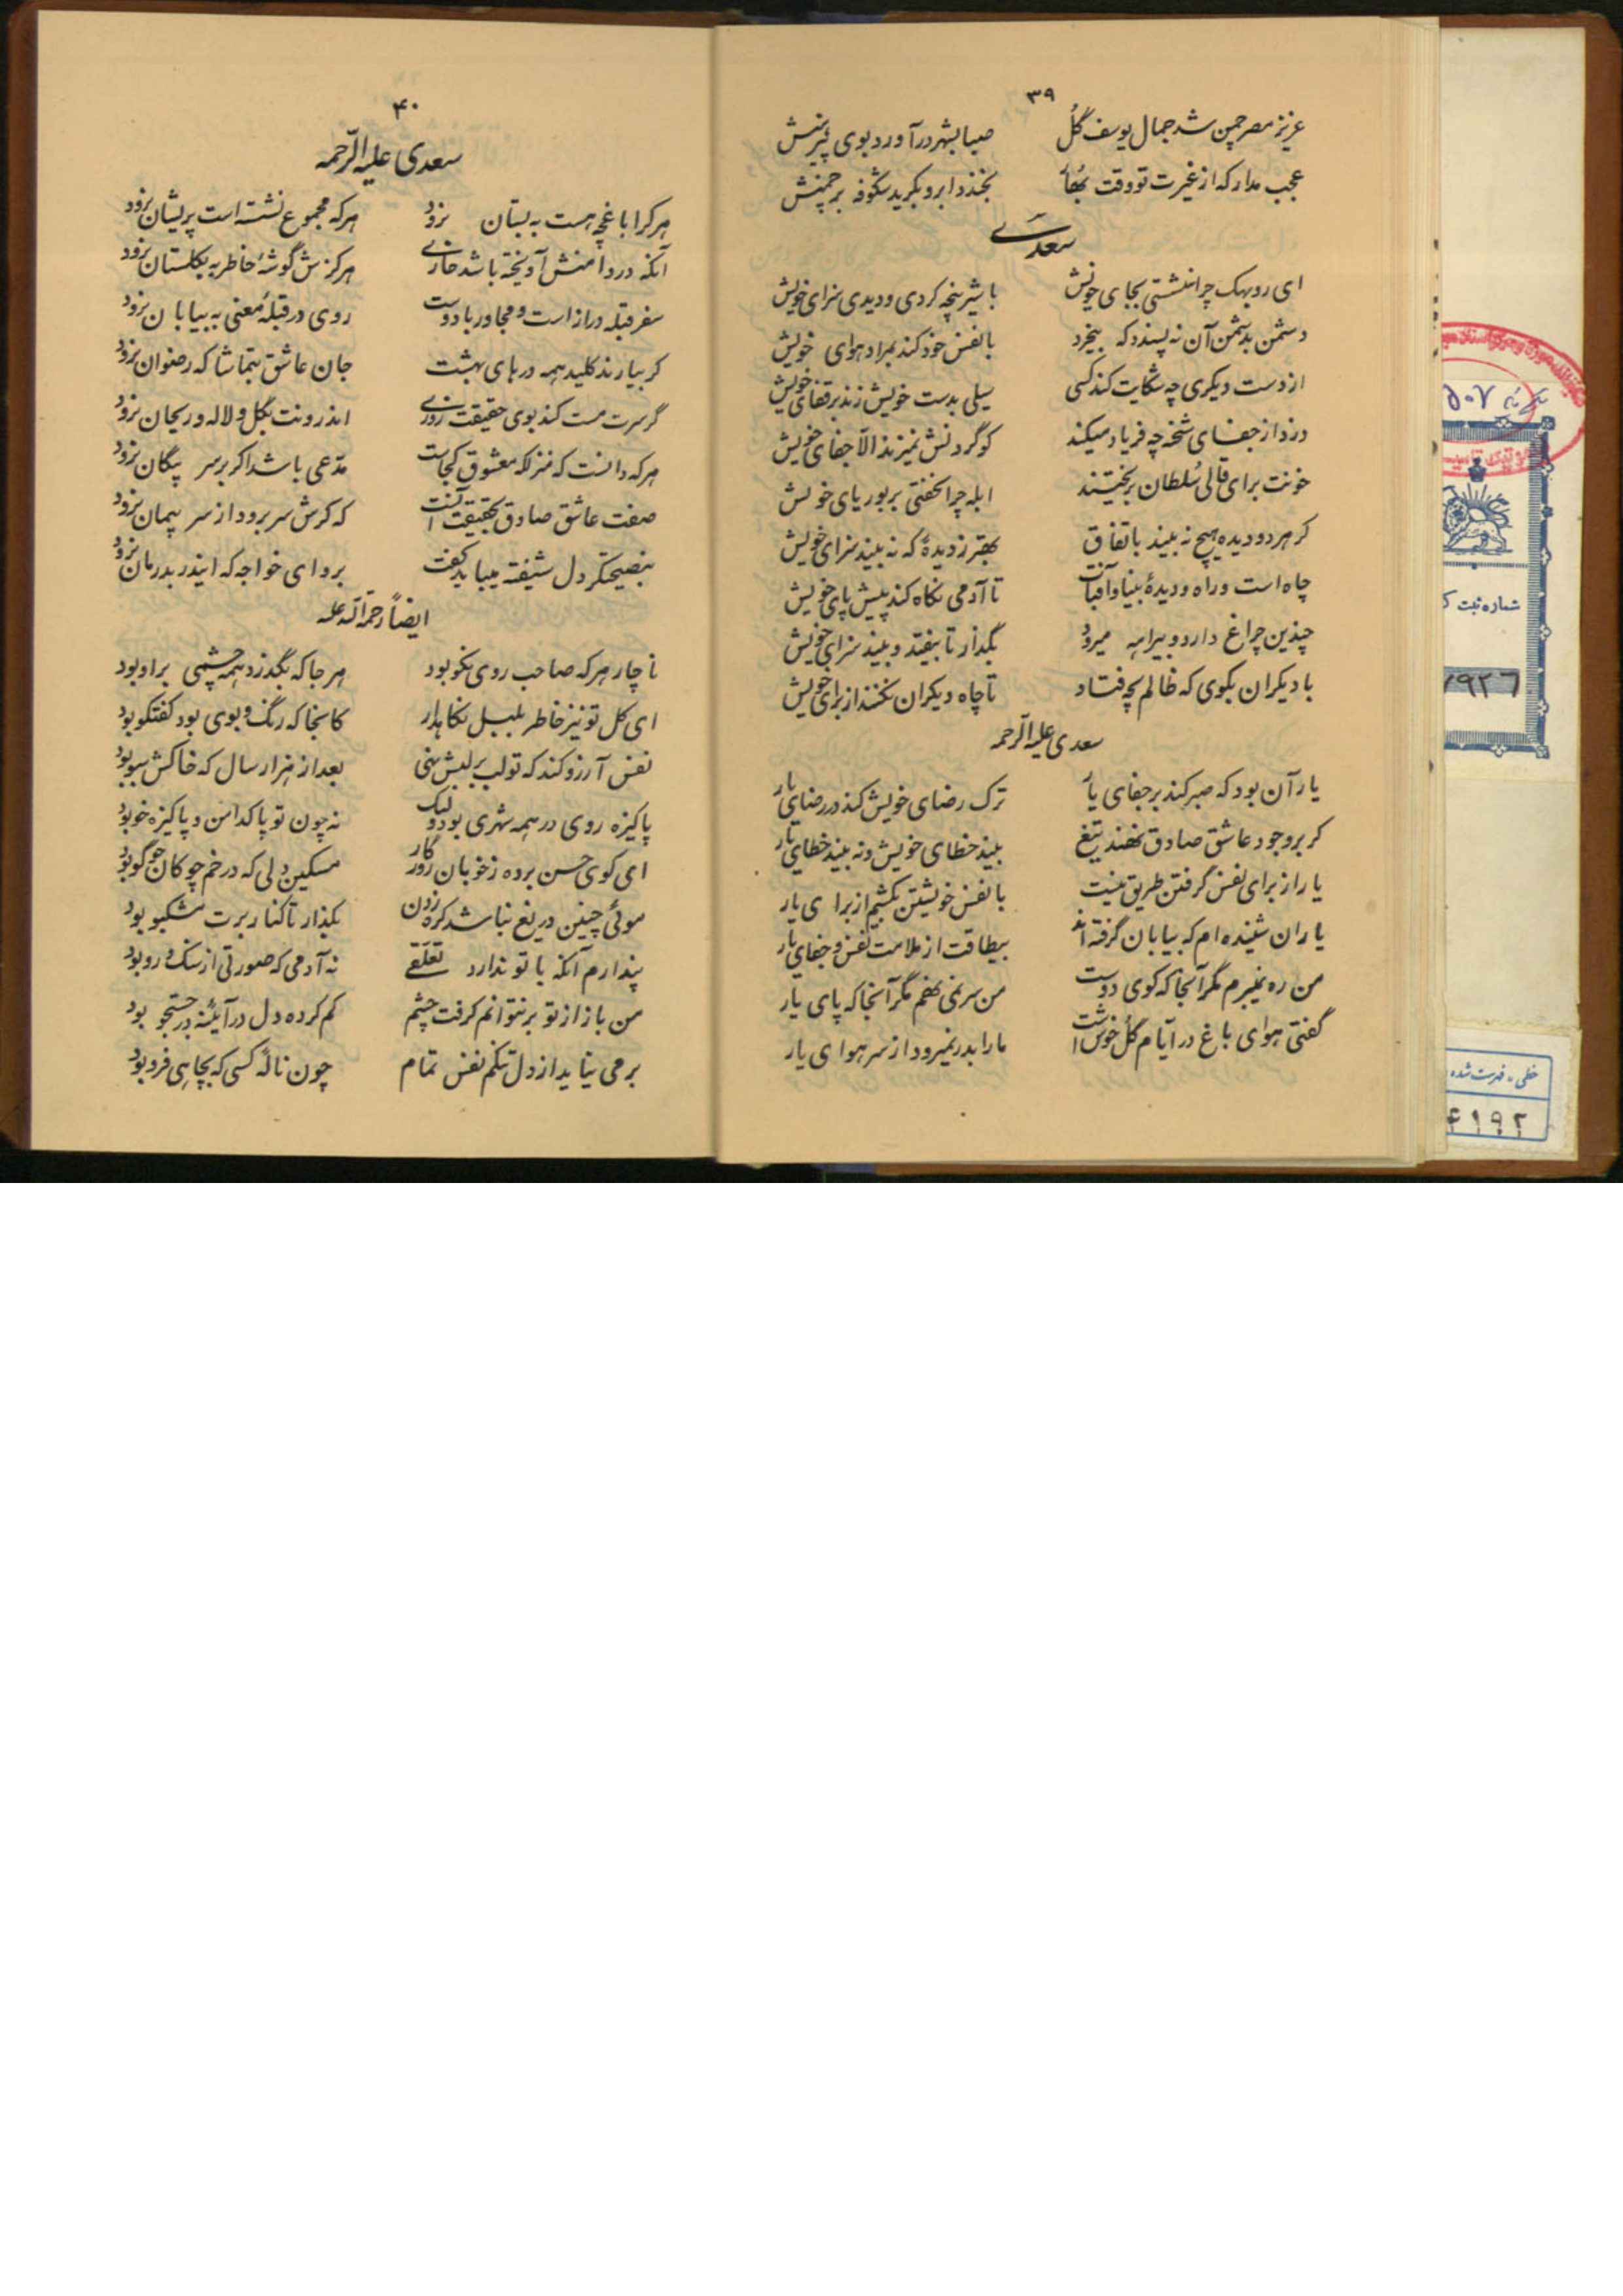 ۳۹
عزیز مصر چمن شد جمال یوسف گل صبا بشهر در آورد بوی پیرهنش
عجب مدار که از غیرت تو وقت بهار بخندد ابر و بگرید شکوفه بر چمنش
سعدی
ای روبهک چرا ننشستی بجای خویش با شیر پنجه کردی و دیدی سزای خویش
دشمن بدشمن آن نه پسندد که بیخرد با نفس خود کند بمراد هوای خویش
از دست دیگری چه شکایت کند کسی سیلی بدست خویش زند بر قفای خویش
دزد از جفای شحنه چه فریاد میکند کو گردنش نمیزند الا جفای خویش
خونت برای قالی سلطان بریختند ابله چرا نخفتی بر بوریای خویش
گر هر دو دیده هیچ نه بیند باتفاق بهتر ز دیدهٔ که نه بیند سزای خویش
چاه است و راه و دیدهٔ بینا و آفتاب تا آدمی نگاه کند پیش پای خویش
چندین چراغ دارد و بیراهه میرود بگذار تا بیفتد و بیند سزای خویش
با دیگران بگوی که ظالم بچه فتاد تا چاه دیگران نکنند از برای خویش
سعدی علیه الرحمه
یار آن بود که صبر کند بر جفای یار ترک رضای خویش کند در رضای یار
گر بر وجود عاشق صادق نهند تیغ بیند خطای خویش و نه بیند خطای یار
یار از برای نفس گرفتن طریق نیست با نفس خویشتن بکشیم از برای یار
یاران شنیده ام که بیابان گرفته اند بیطاقت از ملامت نفس و جفای یار
من ره نمیبرم مگر آنجا که کوی دوست من سر نمی نهم مگر آنجا که پای یار
گفتی هوای باغ در ایام گل خوش است ما را بدر نمیرود از سر هوای یار
۴۰
سعدی علیه الرحمه
هر کرا باغچه هست به بستان نرود هر که مجموع نشسته است پریشان نرود
آنکه در دامنش آویخته باشد خاری هرگزش گوشهٔ خاطر به گلستان نرود
سفر قبله دراز است و مجاور با دوست روی در قبلهٔ معنی به بیابان نرود
گر بیارند کلید همه درهای بهشت جان عاشق بتماشا که رضوان نرود
گر سرت مست کند بوی حقیقت روزی اندرونت بگل و لاله و ریحان نرود
هر که دانست که منزلکه معشوق کجاست مدعی باشد اگر بر سر پیکان نرود
صفت عاشق صادق بحقیقت آنست که گرش سر برود از سر پیمان نرود
بنصیحتگر دل شیفته میباید گفت برو ای خواجه که ایندرد بدرمان نرود
ایضاً رحمة الله علیه
ناچار هر که صاحب روی نکو بود هر جا که بگذرد همه چشمی بر او بود
ای گل تو نیز خاطر بلبل نگاهدار کانجا که رنگ و بوی بود گفتگو بود
نفس آرزو کند که تو لب بر لبش نهی بعد از هزار سال که خاکش سبو بود
پاکیزه روی در همه شهری بود ولیک نه چون تو پاکدامن و پاکیزه خو بود
ای گوی حسن برده ز خوبان روزگار مسکین دلی که در خم چوکان چو گو بود
موئی چنین دریغ نباشد گره زدن بگذار تا کنار برت مشکبو بود
پندارم آنکه با تو ندارد تعلقی نه آدمی که صورتی از سنک و رو بود
من باز از تو بر نتوانم گرفت چشم گم کرده دل در آینه در جستجو بود
بر می نیاید از دل تنگم نفس تمام چون نالهٔ کسی که بچاهی فرو بود
شماره ثبت
۷۹۲۶
خطی - فهرست شده
۴۱۹۲